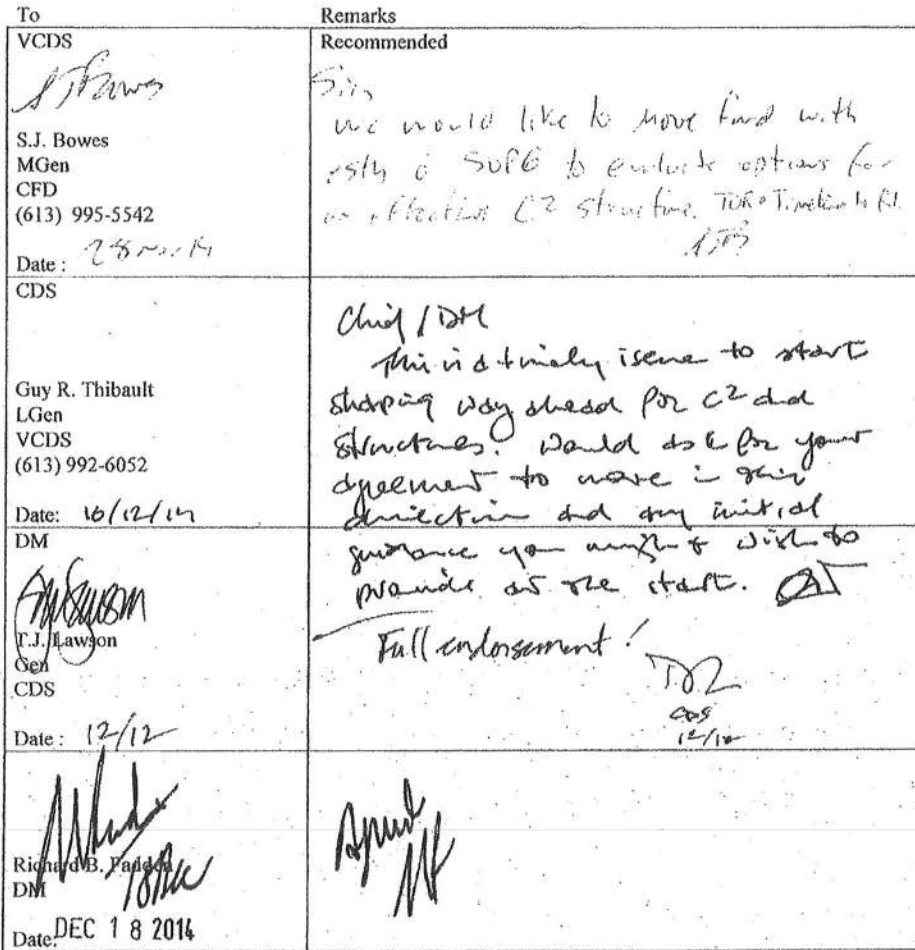 To Remarks
VCDS Recommended
S.J. Bowes
MGen
CFD
(613) 995-5542
Date :
Sir,
We would like to move with
to evaluate options for
an effective C2 structure.
CDS
Guy R. Thibault
LGen
VCDS
(613) 992-6052
Date: 10/12/14
Chief / DM
This is a timely issue to start
shaping way ahead for C2 and
structures. Would ask for your
agreement to move in this
direction and any initial
guidance you might wish to
provide at the start.
DM
T.J. Lawson
Gen
CDS
Date : 12/12
Full endorsement !
CDS
12/12
Richard B. Fadden
DM
Date: DEC 18 2014
Agreed